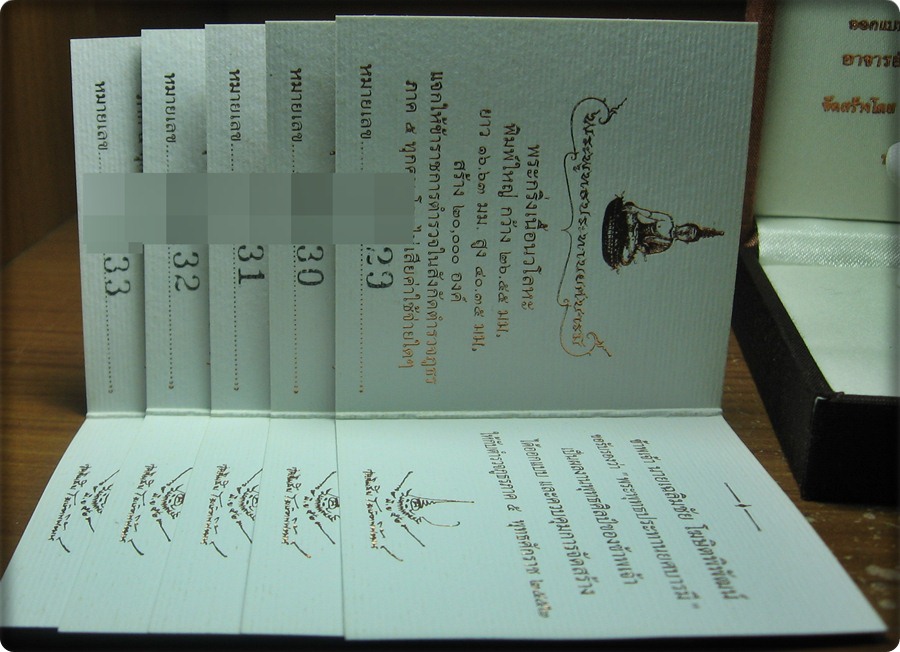 พระพุทธประทานยศบารมี
พระกริ่งเนื้อนาโลหะ
พิมพ์ใหญ่ กว้าง ๒๖.๕๕ มม,
ยาว ๑๖.๖๓ มม. สูง ๔๐.๓๕ มม,
สร้าง ๒๐,๐๐๐ องค์
แจกให้ข้าราชการตำรวจในสังกัดตำรวจภูธร
ภาค ๕ ไม่เสียค่าใช้จ่ายใดๆ
หมายเลข 29
หมายเลข 30
หมายเลข 31
หมายเลข 32
หมายเลข 33
ข้าพเจ้า นายเฉลิมชัย โฆษิตพิพัฒน์
ขอรับรองว่า "พระพุทธประทานยศบารมี"
เป็นผลงานพุทธศิลป์ของข้าพเจ้า
ได้ออกแบบ และควบคุมการจัดสร้าง
ให้กับตำรวจภูธรภาค ๕ พุทธศักราช ๒๕๕๒
ออกแบบ
อาจารย์
จัดสร้างโดย